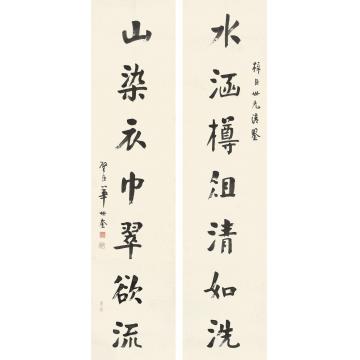 水涵樽俎清如洗
山染衣巾翠欲流
華世奎